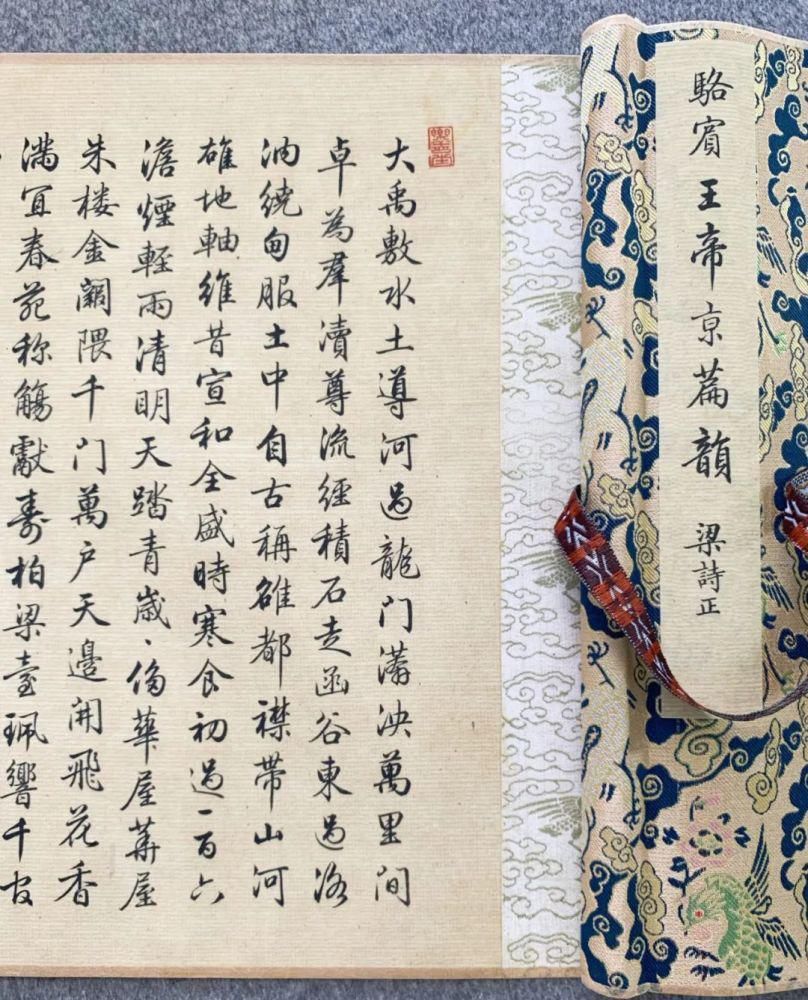 駱賓王帝京篇韻 梁詩正
大禹敷水土導河過龍門漭泱萬里間
卓為羣瀆尊流經積石走函谷東過洛
汭繞甸服土中自古稱雄都襟帶山河
雄地軸維昔宣和全盛時寒食初過一百六
澹煙輕雨清明天踏青歲〻傍華屋華屋
朱楼金闕隈千門萬户天邊開飛花香
満宜春苑称觴獻壽柏梁臺珮響千官